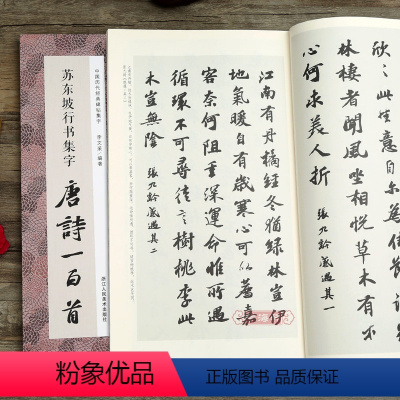 中国历代经典碑帖集字
李文采·编著
苏东坡行书集字
唐詩一百首
浙江人民美术出版社
欣〻此生意
林棲者聞風坐相悦草木有
心何求美人折
張九齡感遇其一
江南有丹橘經冬猶綠林豈伊
地氣暖自有歲寒心可以薦嘉
客奈何阻重深運命惟所遇
循環不可尋徒言樹桃李此
木豈無陰
張九齡感遇其二
粉象优品
正版图书